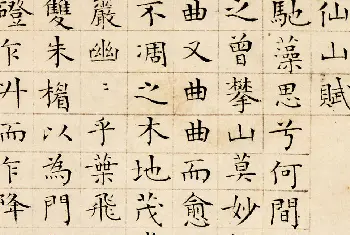 仙山賦
馳藻思兮何間
之曾攀山莫妙
曲又曲曲而愈
不凋之木地茂
嚴幽〻乎葉飛
雙朱楣以為門
磴乍升而乍降